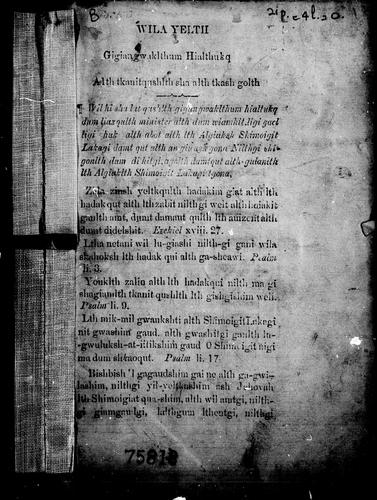 B
WILA YELTH
Gigiangwaklthum Hialthukq
Alth tkanitqushlth sha alth tkash golth
¶ Wil hi sha lut qus'lth gigangwaklthum hialtukq
dum liaxqulth minister alth dum wiamkit ligi gact
ligi hak alth abot alth lth Algiaksh Shimoigit
Lakagi damt qut alth an giwaksh gona Nilthgi shi-
gonlth dum di hitgi, agolth damtqut alth gulanlth
lth Algiaklth Shimoigit Lakagi tgona.
Zela zinsh yeltkqulth hadakim giat alth lth
hadak qut alth lthzabit nilthgi weit alth
gaulth amt, dumt damaut qulth lth amzent alth
dumt didelshit. Ezekiel xviii. 27.
Ltha netani wil lu-giashi nilth-gi gani wila
shahoksh lth hadak qui alth ga-sheawi. Psalm
li. 3.
Youklth zaliu alth lth hadakqui nilth ma gi
shagiamlth tkanit qushlth lth gishgishim weli.
Psalm li. 9.
Lth mik-mil gwaukshti alth Shimoigit Lakagi
nit gwashim gaud, alth gwashitgi gaulth lu-
gwuluksh-at-iitikshim gaud O Shimoigit nigi
ma dum shitaoqut. Psalm li. 17
Bishbish 'l gagaudshim gai ne alth ga-gwi-
lashim, nilthgi yil-yeltkushim ash Jehovah
lth Shimoigiat qua-shim, alth wil amtgi, nilth-
gi giamgaulgi, lalthgum lthentgi, nilthgi
75818